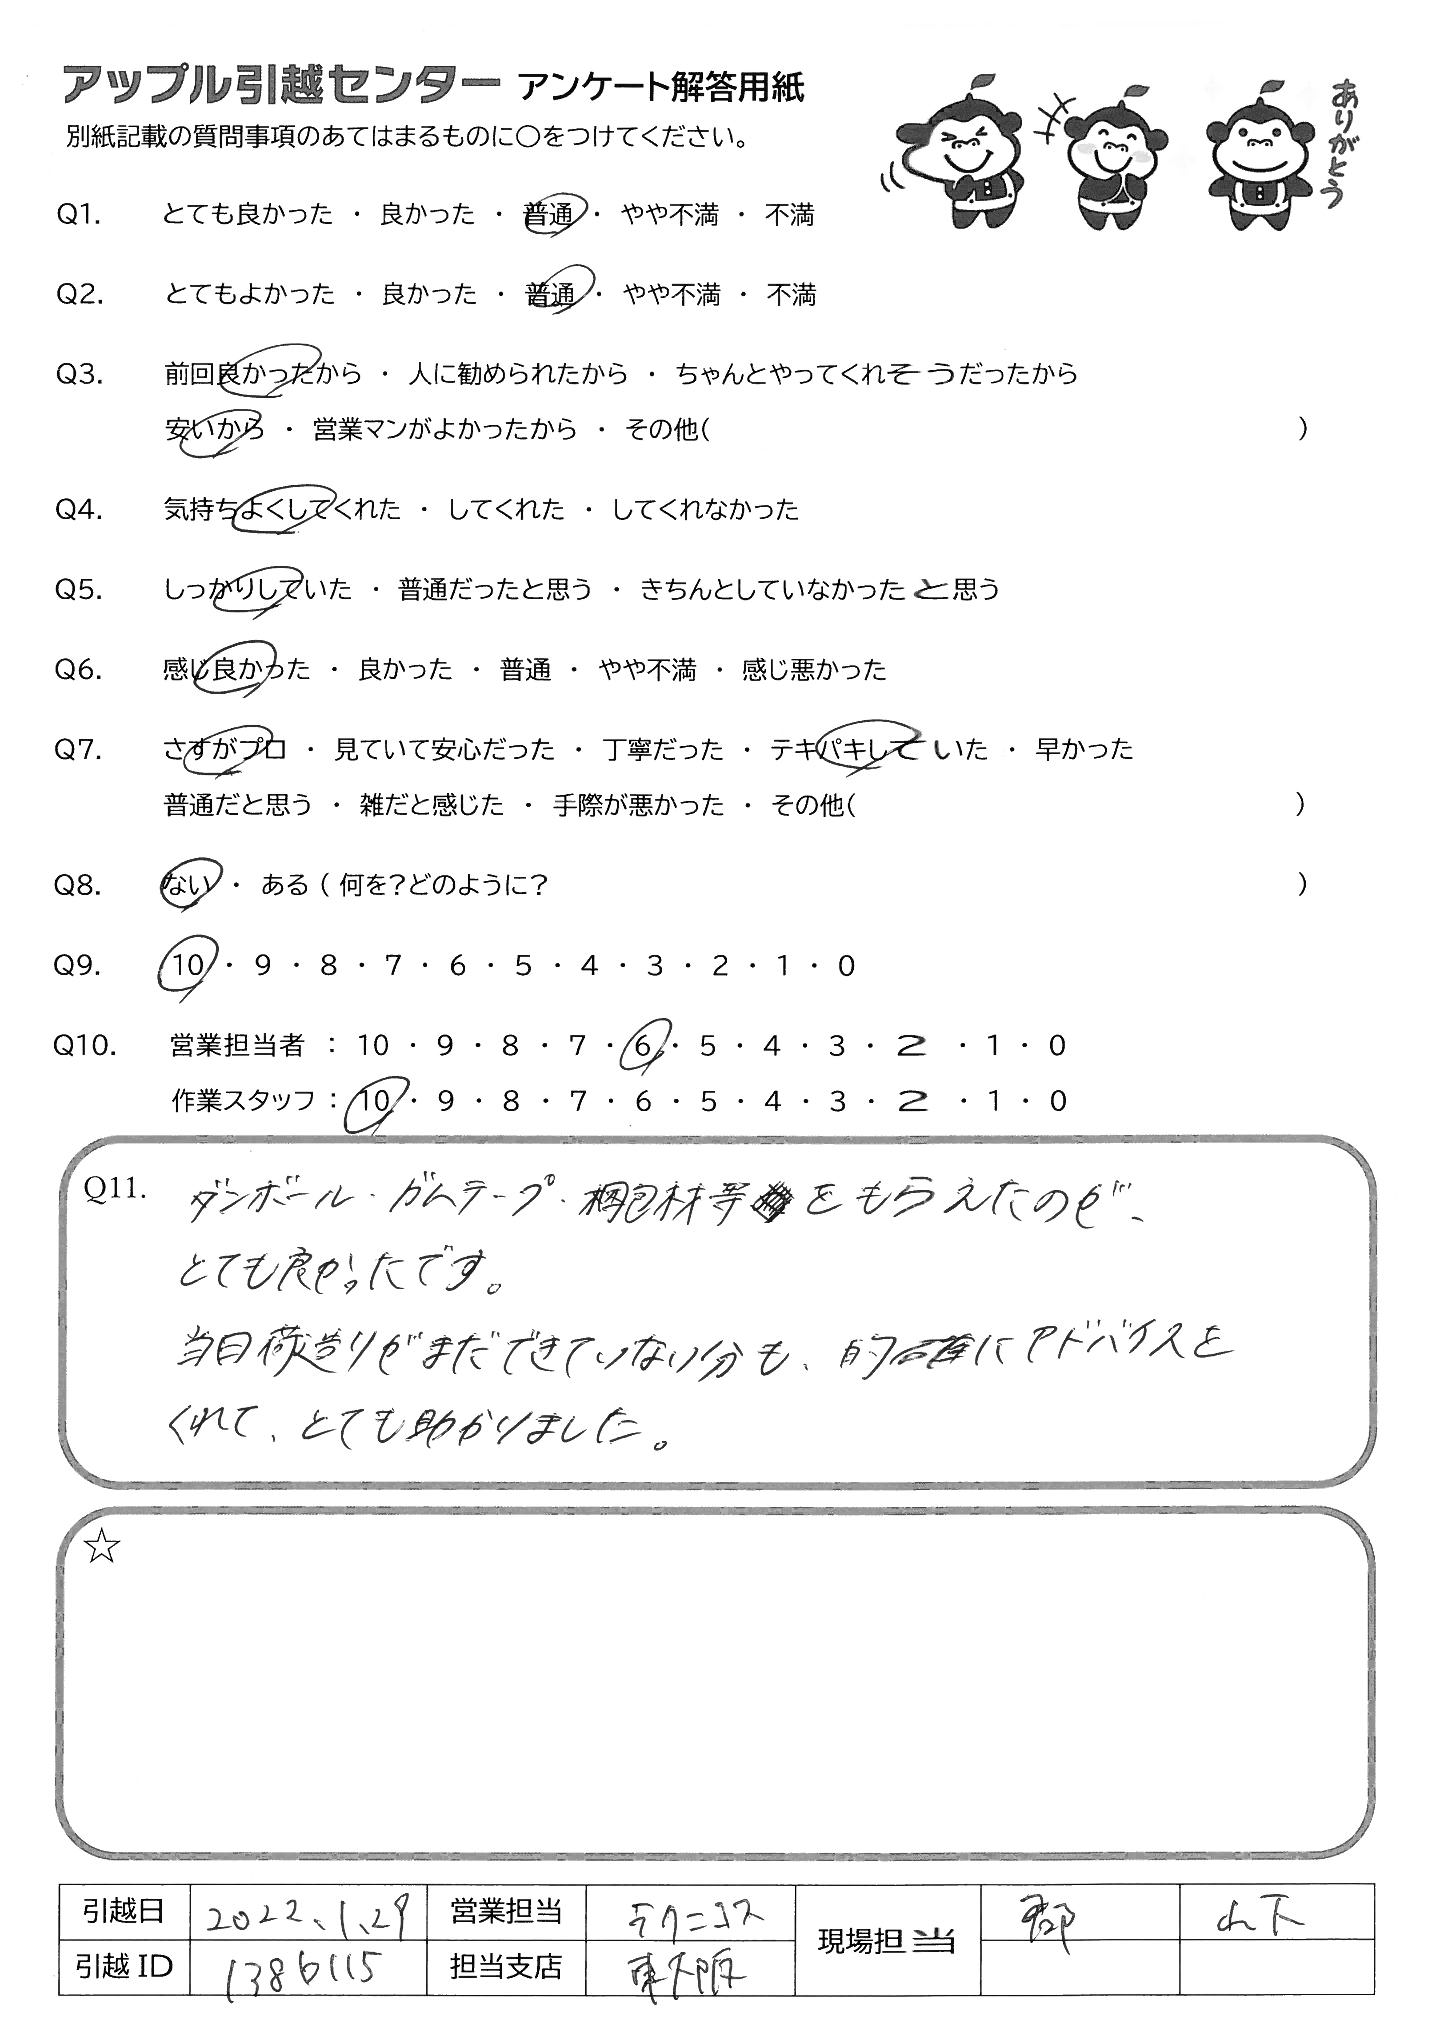 アップル引越センター アンケート解答用紙
別紙記載の質問事項のあてはまるものに○をつけてください。
ありがとう
Q1. とても良かった ・ 良かった ・ 普通 ・ やや不満 ・ 不満
Q2. とてもよかった ・ 良かった ・ 普通 ・ やや不満 ・ 不満
Q3. 前回良かったから ・ 人に勧められたから ・ ちゃんとやってくれそうだったから
安いから ・ 営業マンがよかったから ・ その他( )
Q4. 気持ちよくしてくれた ・ してくれた ・ してくれなかった
Q5. しっかりしていた ・ 普通だったと思う ・ きちんとしていなかったと思う
Q6. 感じ良かった ・ 良かった ・ 普通 ・ やや不満 ・ 感じ悪かった
Q7. さすがプロ ・ 見ていて安心だった ・ 丁寧だった ・ テキパキしていた ・ 早かった
普通だと思う ・ 雑だと感じた ・ 手際が悪かった ・ その他( )
Q8. ない ・ ある ( 何を?どのように? )
Q9. 10 ・ 9 ・ 8 ・ 7 ・ 6 ・ 5 ・ 4 ・ 3 ・ 2 ・ 1 ・ 0
Q10. 営業担当者 : 10 ・ 9 ・ 8 ・ 7 ・ 6 ・ 5 ・ 4 ・ 3 ・ 2 ・ 1 ・ 0
作業スタッフ : 10 ・ 9 ・ 8 ・ 7 ・ 6 ・ 5 ・ 4 ・ 3 ・ 2 ・ 1 ・ 0
Q11. ダンボール・ガムテープ・梱包材等をもらえたのが、
とても良かったです。
当日荷造りがまだできていない分も、的確にアドバイスを
くれて、とても助かりました。
☆
引越日 2022、1、29 営業担当 テクニコス 現場担当 郡 山下
引越ID 1386115 担当支店 東大阪